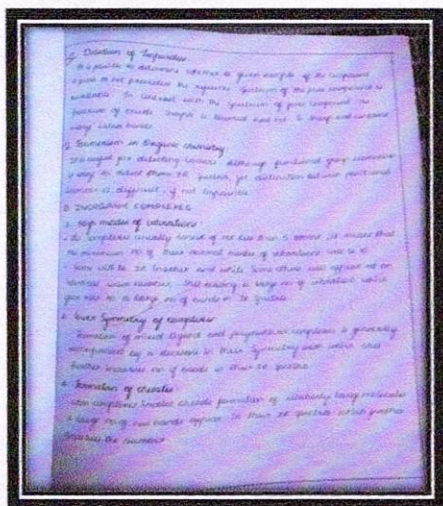 7. Detection of Impurities
It is possible to determine whether a given sample of the compound
is pure or not provided the reference spectrum of the pure compound is
available. In contrast with the spectrum of pure compound, the
spectrum of crude sample is blurred and not so sharp and contains
many extra bands
8. Isomerism in Organic chemistry
It is useful for detecting isomers. Although functional group isomerism
is easy to detect from IR spectra, yet distinction between positional
isomers is difficult, if not impossible
B. INORGANIC COMPLEXES
1. High modes of vibrations
As complexes usually consist of not less than 5 atoms, it means that
the minimum no. of their normal modes of vibrations will be
Some will be IR Inactive and while some others will appear at an
identical wave number, still leaving a large no. of vibrations which
give rise to a large no. of bands in IR spectra
2. Lower Symmetry of complexes
Formation of mixed ligand and polynuclear complexes is generally
accompanied by a decrease in their symmetry upon which this
further increases no. of bands in their IR spectra
3. Formation of chelates
When complexes involve chelate formation of relatively large molecules
a large no. of new bands appear in their IR spectra which further
increases the number